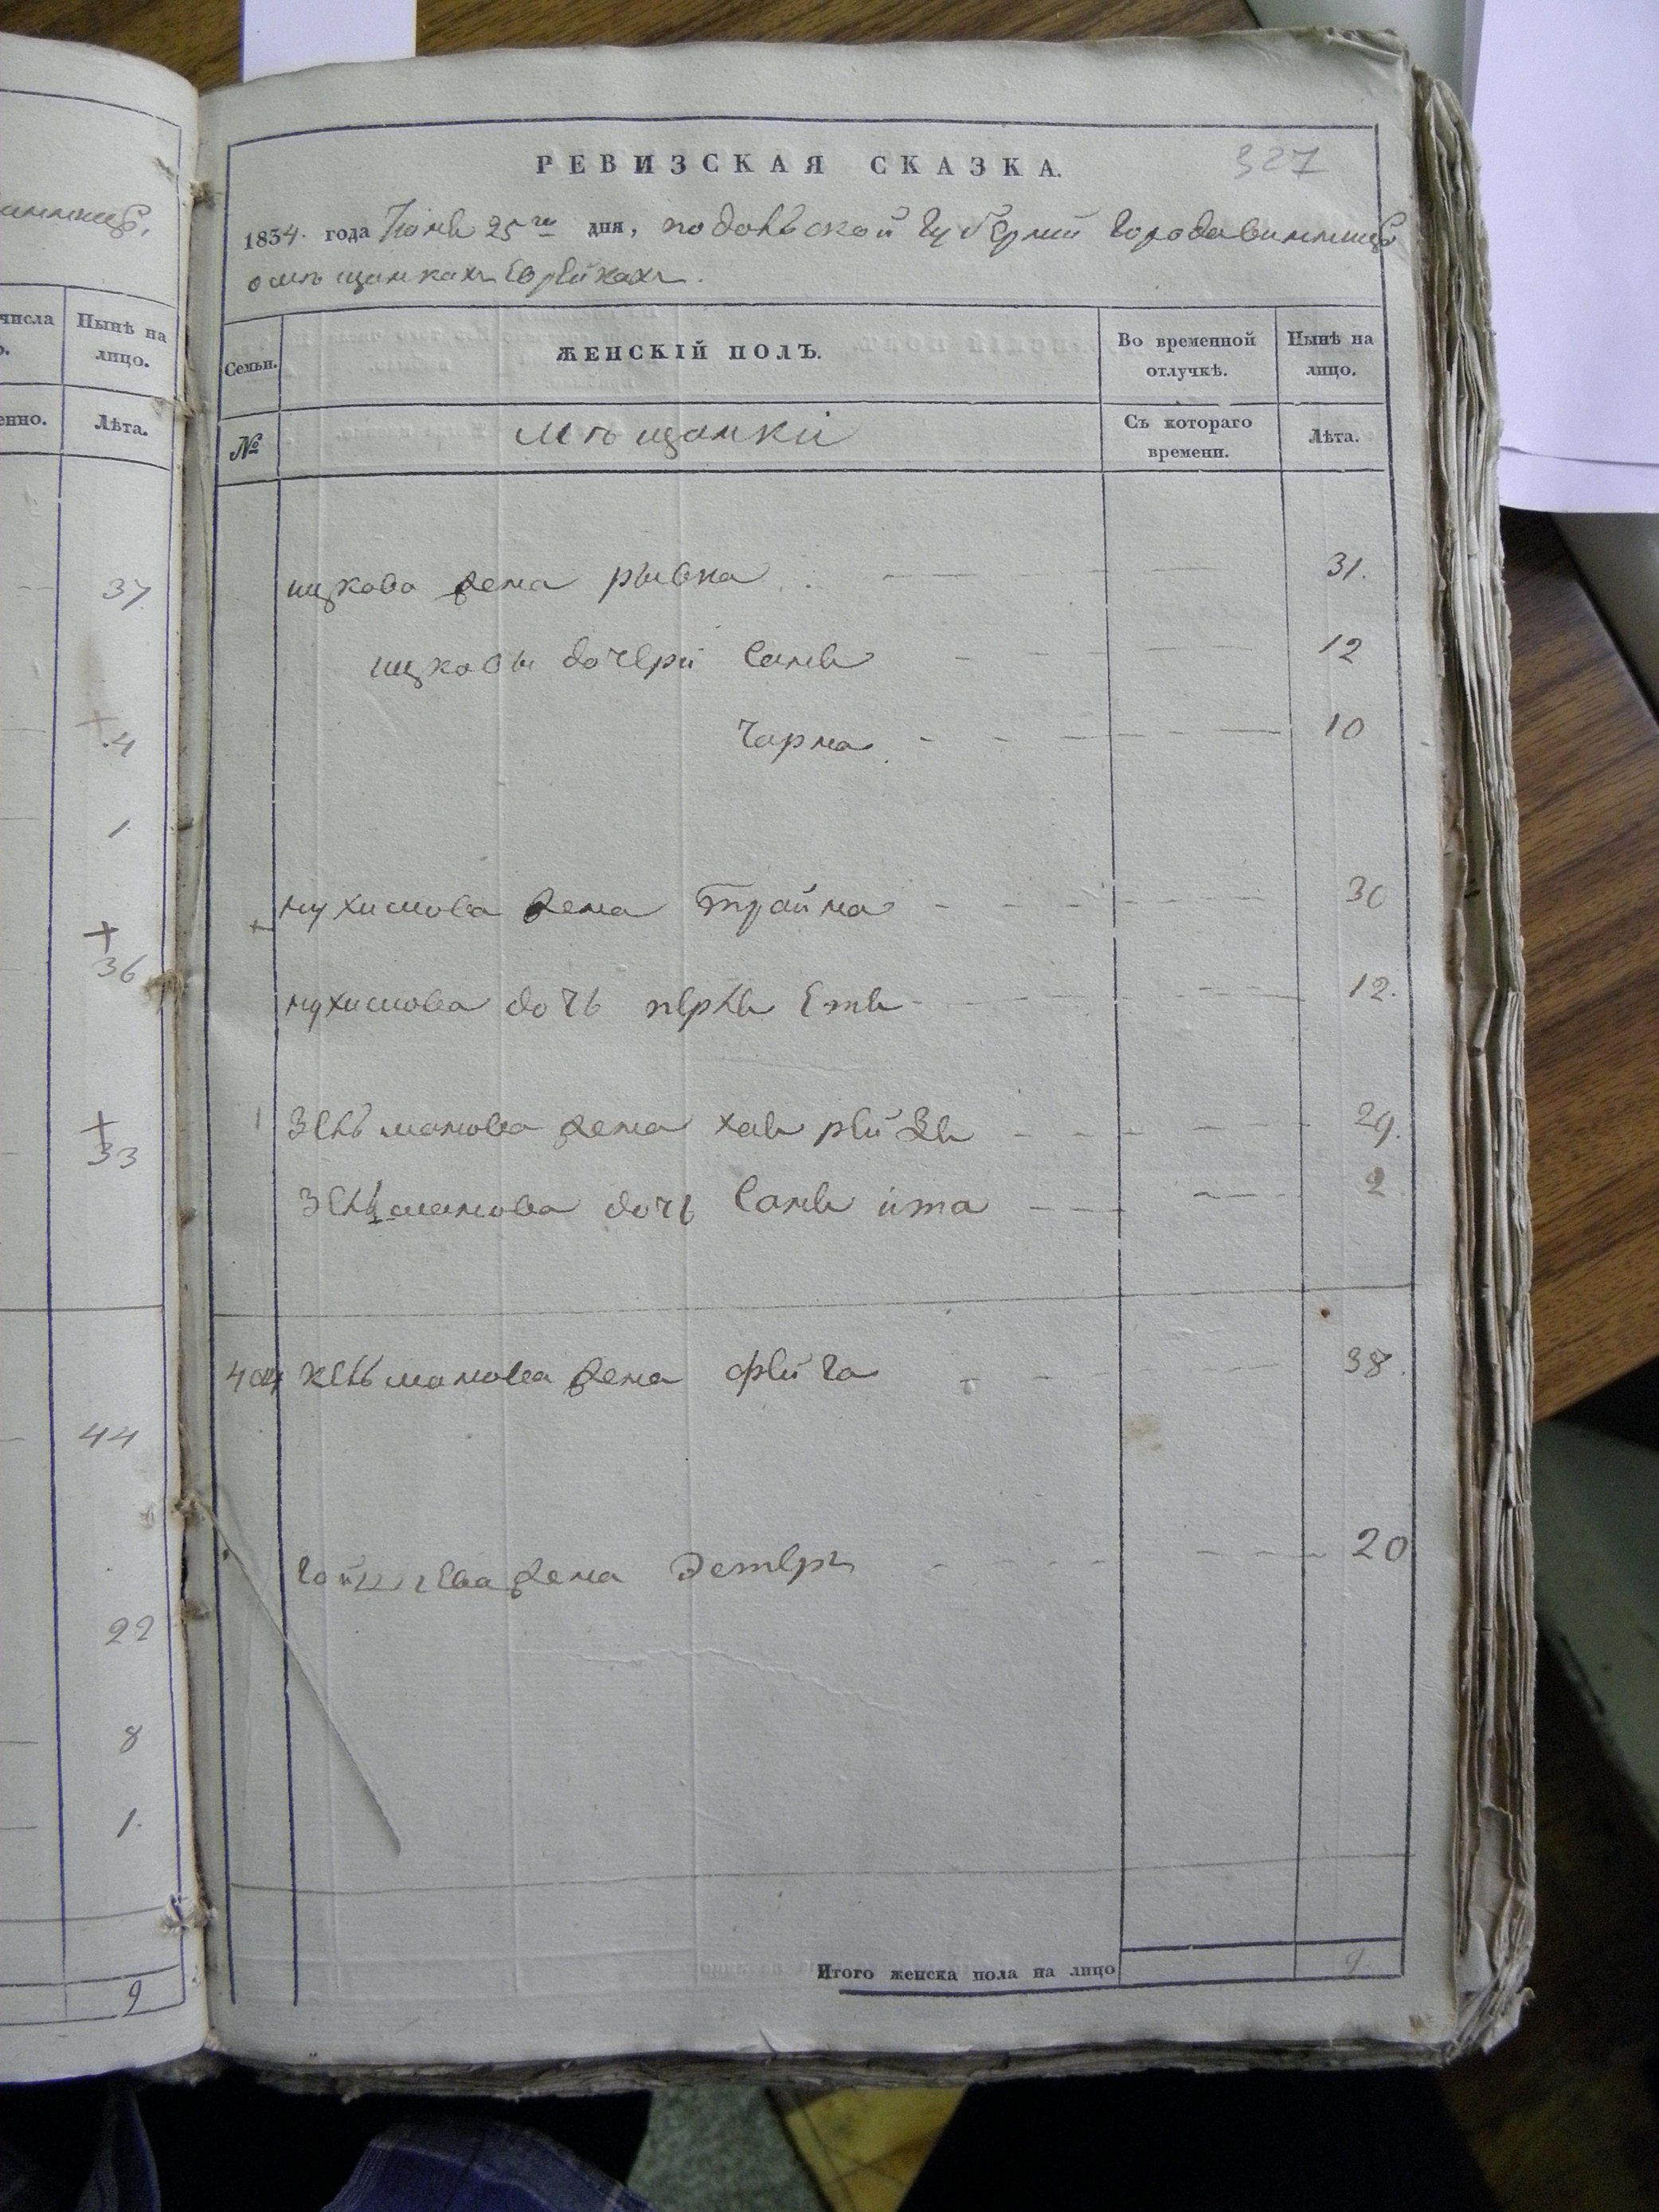 РЕВИЗСКАЯ СКАЗКА.
327
1834. года Июня 25го дня, подольской Губернии Города винницы
о мѣщанкахъ Еврейкахъ.
числа
Нынѣ на лицо.
Лѣта.
37.
4
1.
36
33
44
22
8
1.
9
Семьи. ЖЕНСКІЙ ПОЛЪ. Во временной отлучкѣ. Нынѣ на лицо.
№ Мѣщанки Съ котораго времени. Лѣта.
ицкова жена рывка 31.
ицковы дочери Сапя 12
Чарна 10
нухимова жена трайна 30
нухимова дочь перля Етя 12.
Зельманова жена хая рейзя 29.
Зельманова дочь ита 2
404 кельманова жена фейга 38.
жена Эстеръ 20
Итого женска пола на лицо 9